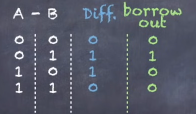 A - B Diff. borrow out
0 0 0 0
0 1 1 1
1 0 1 0
1 1 0 0